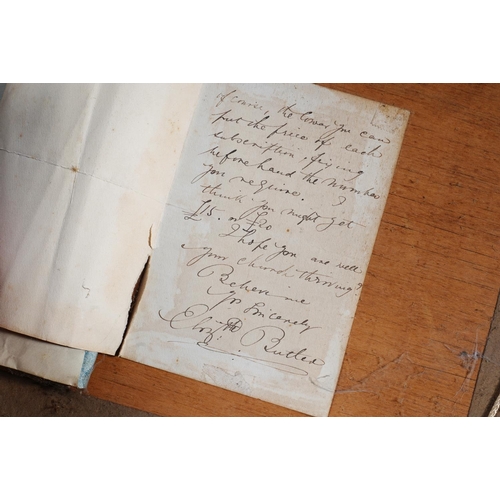 of course, the lower you can
put the price of each
subscription, fixing
beforehand the number
you require. I
think you might get
£15. or £20
I hope you are well
& your church thriving?
Believe me
Yrs Sincerely
Elizth Butler